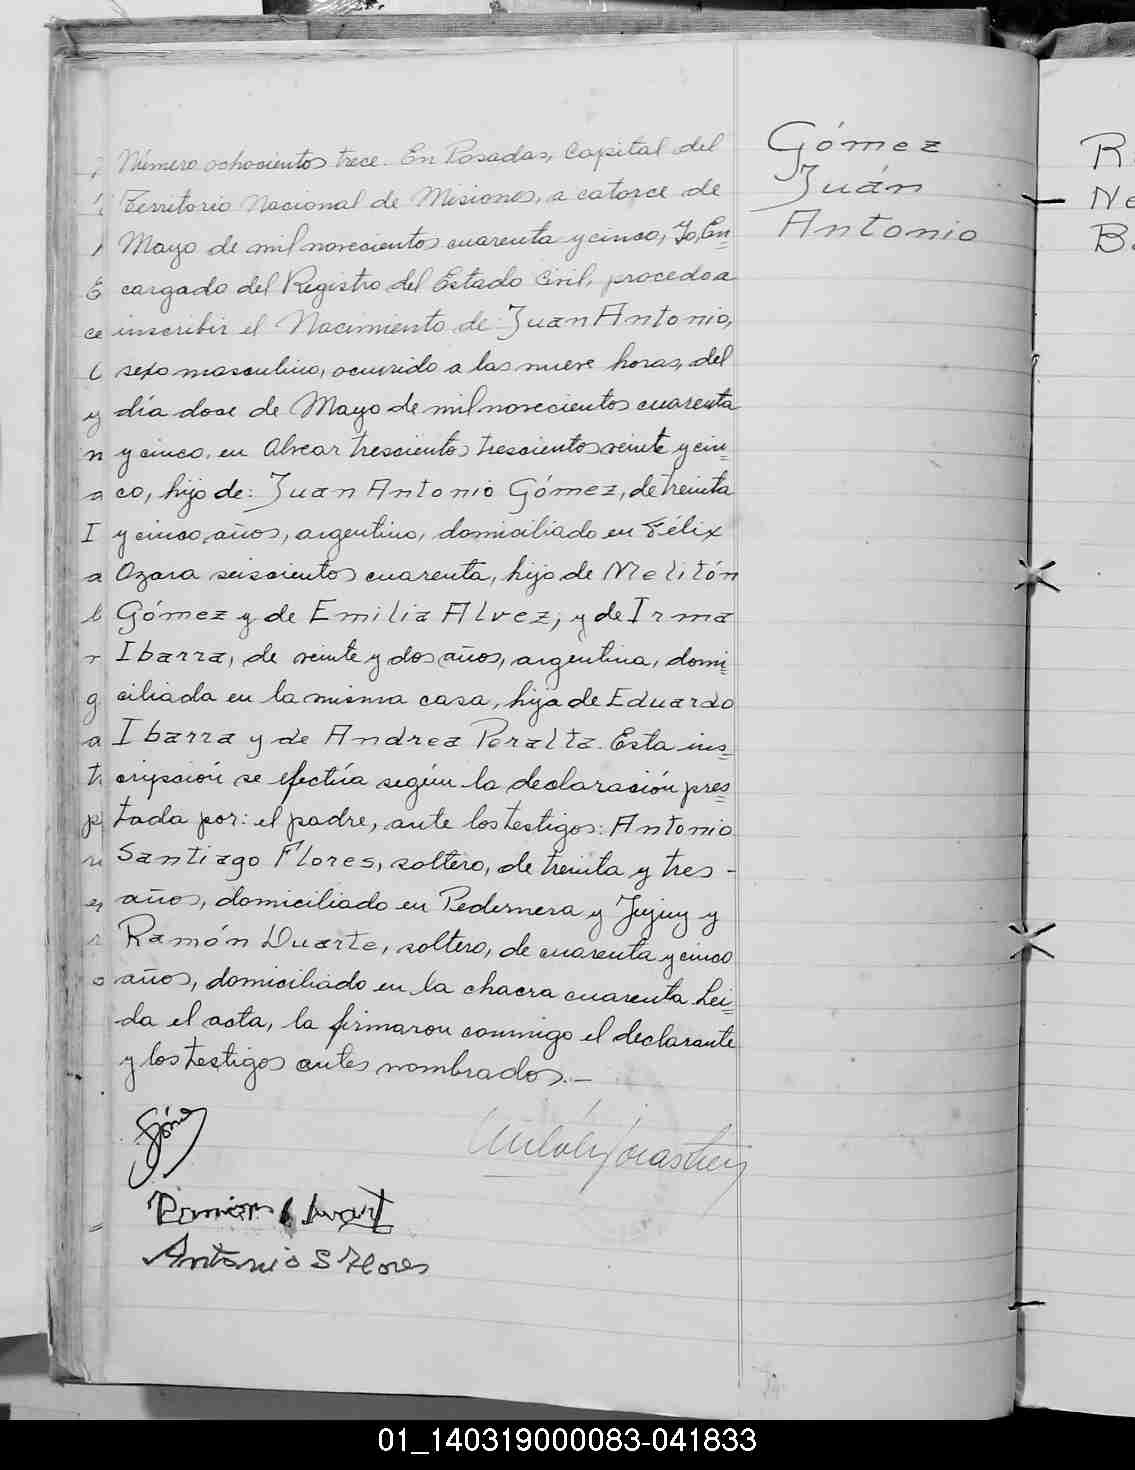 Gómez
Juán
Antonio
Número ochocientos trece. En Posadas, Capital del
Territorio Nacional de Misiones, a catorce de
Mayo de mil novecientos cuarenta y cinco, Yo, En=
cargado del Registro del Estado Civil, procedo a
inscribir el Nacimiento de: Juan Antonio,
sexo masculino, ocurrido a las nueve horas, del
día dose de Mayo de mil novecientos cuarenta
y cinco, en Alvear trescientos trescientos veinte y cin=
co, hijo de: Juan Antonio Gómez, de treinta
y cinco años, argentino, domiciliado en Félix
Azara seiscientos cuarenta, hijo de Melitón
Gómez y de Emilia Alvez; y de Irma
Ibarra, de veinte y dos años, argentina, domi=
ciliada en la misma casa, hija de Eduardo
Ibarra y de Andrea Peralta. Esta ins=
cripsción se efectúa según la declaración pres=
tada por: el padre, ante los testigos: Antonio
Santiago Flores, soltero, de treinta y tres -
años, domiciliado en Pedernera y Jujuy y
Ramón Duarte, soltero, de cuarenta y cinco
años, domiciliado en la chacra cuarenta. Lei=
da el acta, la firmaron conmigo el declarante
y los testigos antes nombrados.-
Gómez
Antonio S Flores
01_140319000083-041833